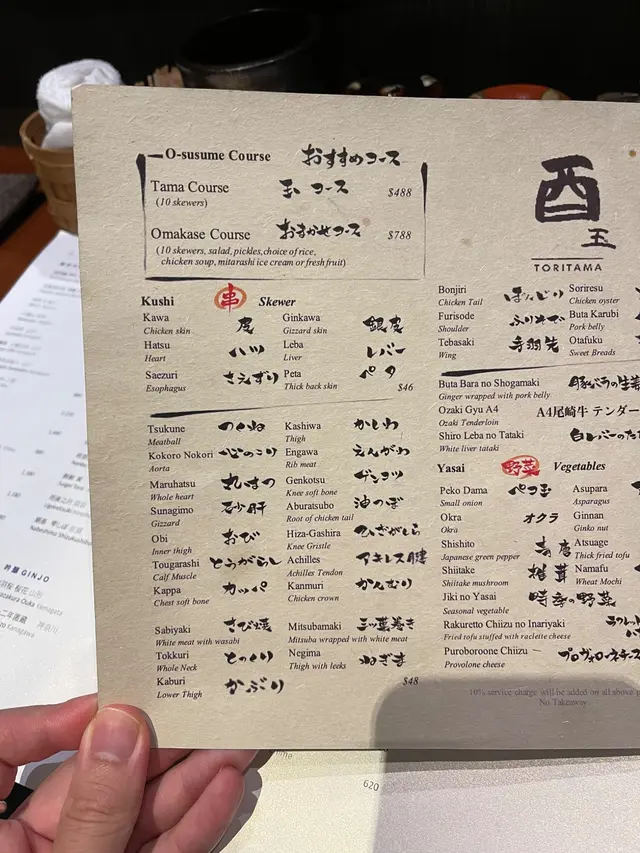 O-susume Course おすすめコース
Tama Course 玉 コース $488
(10 skewers)
Omakase Course おまかせコース $788
(10 skewers, salad, pickles, choice of rice,
chicken soup, mitarashi ice cream or fresh fruit)
Kushi 串 Skewer
Kawa 皮
Chicken skin
Hatsu ハツ
Heart
Saezuri さえずり
Esophagus
Ginkawa 銀皮
Gizzard skin
Leba レバー
Liver
Peta ペタ
Thick back skin
$46
Tsukune つくね
Meatball
Kokoro Nokori 心のこり
Aorta
Maruhatsu 丸はつ
Whole heart
Sunagimo 砂肝
Gizzard
Obi おび
Inner thigh
Tougarashi とうがらし
Calf Muscle
Kappa カッパ
Chest soft bone
Kashiwa かしわ
Thigh
Engawa えんがわ
Rib meat
Genkotsu ゲンコツ
Knee soft bone
Aburatsubo 油つぼ
Root of chicken tail
Hiza-Gashira ひざがしら
Knee Gristle
Achilles アキレス腱
Achilles Tendon
Kanmuri かんむり
Chicken crown
Sabiyaki さび焼
White meat with wasabi
Tokkuri とっくり
Whole Neck
Kaburi かぶり
Lower Thigh
Mitsubamaki 三ッ葉巻き
Mitsuba wrapped with white meat
Negima ねぎま
Thigh with leeks
$48
酉
玉
TORITAMA
Bonjiri ぼんじり
Chicken Tail
Furisode ふりそで
Shoulder
Tebasaki 手羽先
Wing
Soriresu
Chicken oyster
Buta Karubi
Pork belly
Otafuku
Sweet Breads
Buta Bara no Shogamaki 豚バラの生姜
Ginger wrapped with pork belly
Ozaki Gyu A4 A4尾崎牛 テンダー
Ozaki Tenderloin
Shiro Leba no Tataki 白レバーのた
White liver tataki
Yasai 野菜 Vegetables
Peko Dama ペコ玉
Small onion
Okra オクラ
Okra
Shishito
Japanese green pepper
Shiitake 椎茸
Shiitake mushroom
Jiki no Yasai 時季の野菜
Seasonal vegetable
Asupara
Asparagus
Ginnan
Ginko nut
Atsuage
Thick fried tofu
Namafu
Wheat Mochi
Rakuretto Chiizu no Inariyaki ラクレット
Fried tofu stuffed with raclette cheese
Puroboroone Chiizu プロヴォローネチーズ
Provolone cheese
10% service charge will be added on all above p
No Takeaway
吟醸 GINJO
620